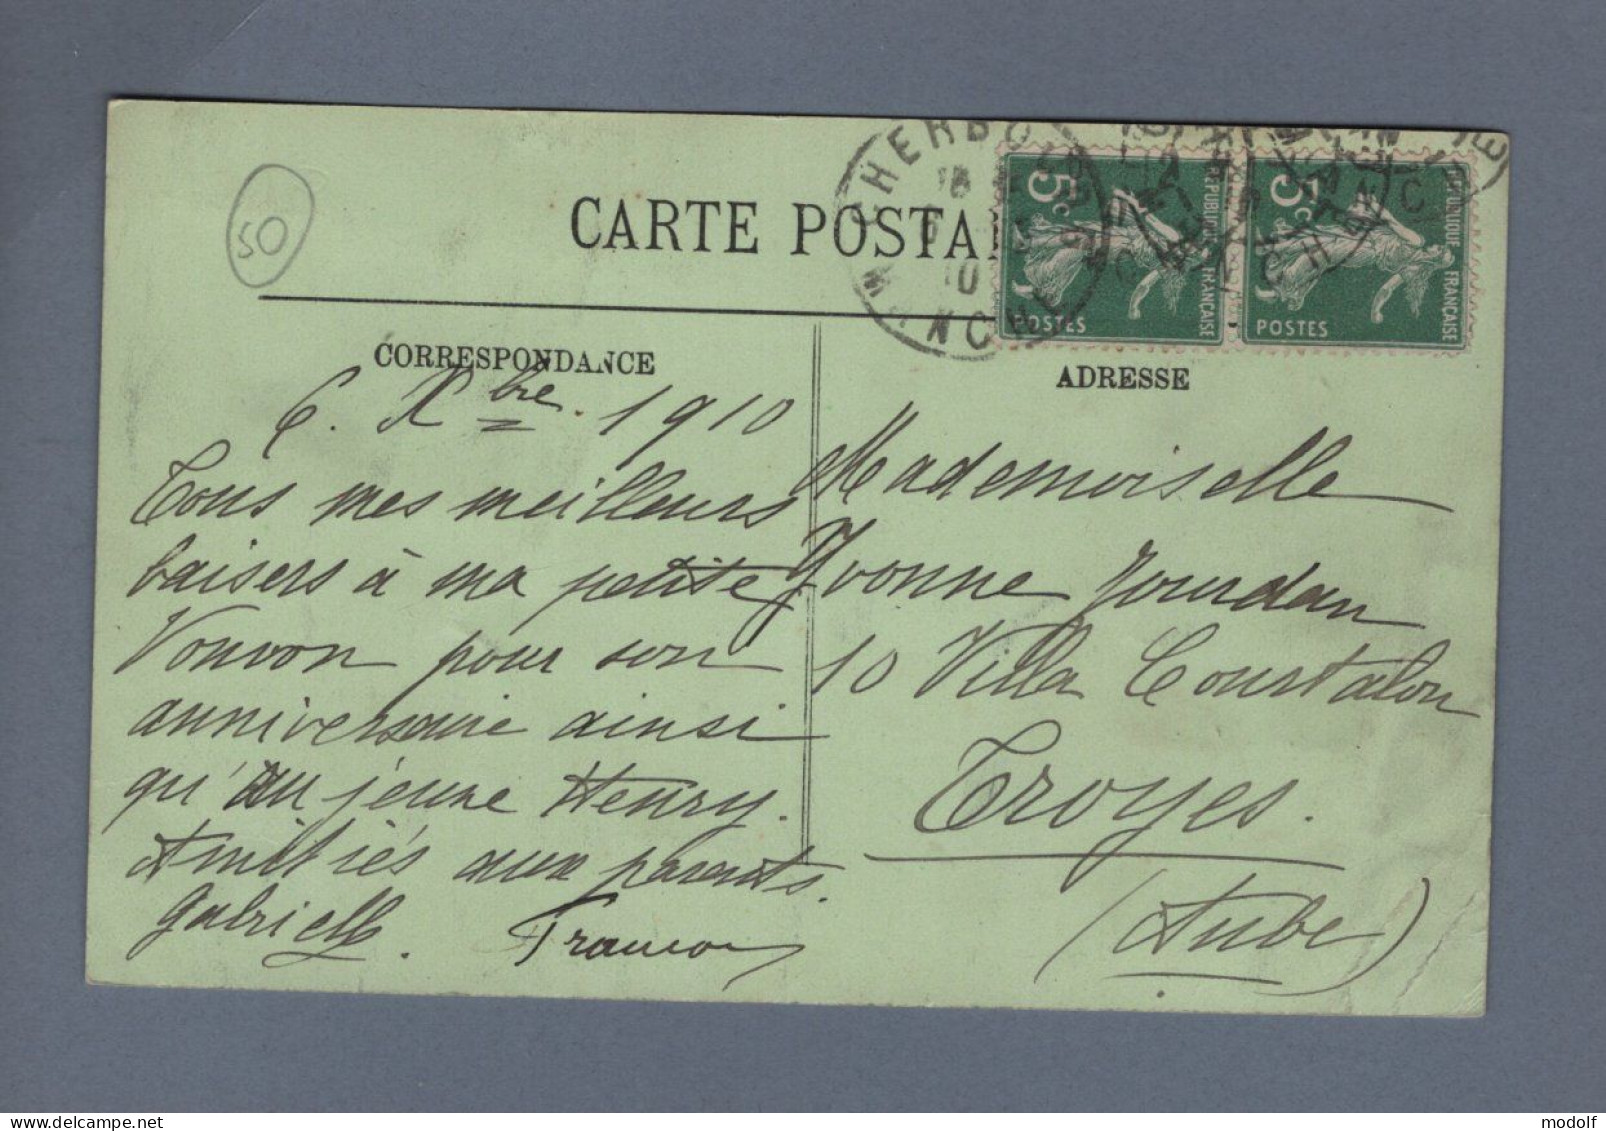 50
CARTE POSTA
CHERBOURG
MANCHE
10
5c
REPUBLIQUE FRANÇAISE
POSTES
5c
REPUBLIQUE FRANÇAISE
POSTES
CORRESPONDANCE
6. Xbre. 1910
Tous mes meilleurs
baisers à ma petite
Vonvon pour son
anniversaire ainsi
qu'au jeune Henry.
Amitiés aux parents.
Gabrielle.
ADRESSE
Mademoiselle
Yvonne Jourdan
10 Villa Courtalon
Troyes.
(Aube)
delcampe.net
modolf